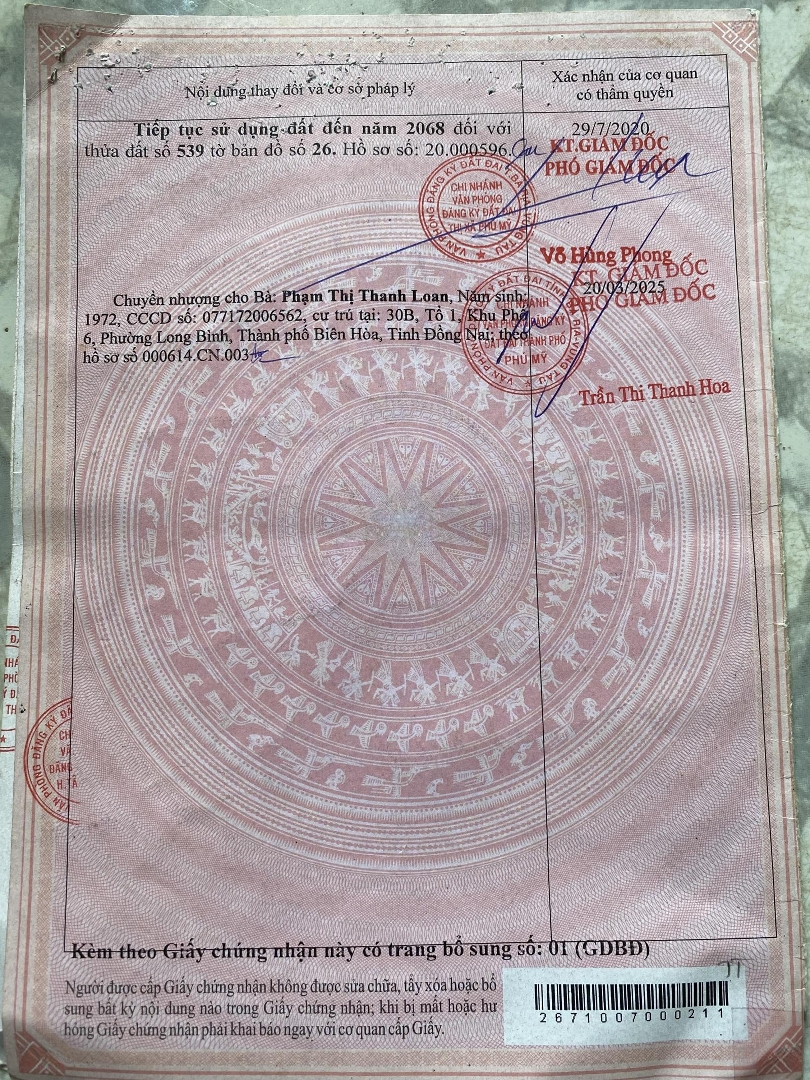 Nội dung thay đổi và cơ sở pháp lý
Xác nhận của cơ quan
có thẩm quyền
Tiếp tục sử dụng đất đến năm 2068 đối với
thửa đất số 539 tờ bản đồ số 26. Hồ sơ số: 20.000596.
29/7/2020
KT.GIÁM ĐỐC
PHÓ GIÁM ĐỐC
VĂN PHÒNG ĐĂNG KÝ ĐẤT ĐAI T.BÀ RỊA-VŨNG TÀU
CHI NHÁNH
VĂN PHÒNG
ĐĂNG KÝ ĐẤT ĐAI
THỊ XÃ PHÚ MỸ
Võ Hùng Phong
Chuyển nhượng cho Bà: Phạm Thị Thanh Loan, Năm sinh:
1972, CCCD số: 077172006562, cư trú tại: 30B, Tổ 1, Khu Phố
6, Phường Long Bình, Thành phố Biên Hòa, Tỉnh Đồng Nai; theo
hồ sơ số 000614.CN.003
20/03/2025
KT. GIÁM ĐỐC
PHÓ GIÁM ĐỐC
CHI NHÁNH
VĂN PHÒNG ĐĂNG KÝ
ĐẤT ĐAI THÀNH PHỐ
PHÚ MỸ
Trần Thị Thanh Hoa
VĂN PHÒNG ĐĂNG KÝ ĐẤT ĐA
Kèm theo Giấy chứng nhận này có trang bổ sung số: 01 (GDBĐ)
Người được cấp Giấy chứng nhận không được sửa chữa, tẩy xóa hoặc bổ
sung bất kỳ nội dung nào trong Giấy chứng nhận; khi bị mất hoặc hư
hỏng Giấy chứng nhận phải khai báo ngay với cơ quan cấp Giấy.
77
2671007000211